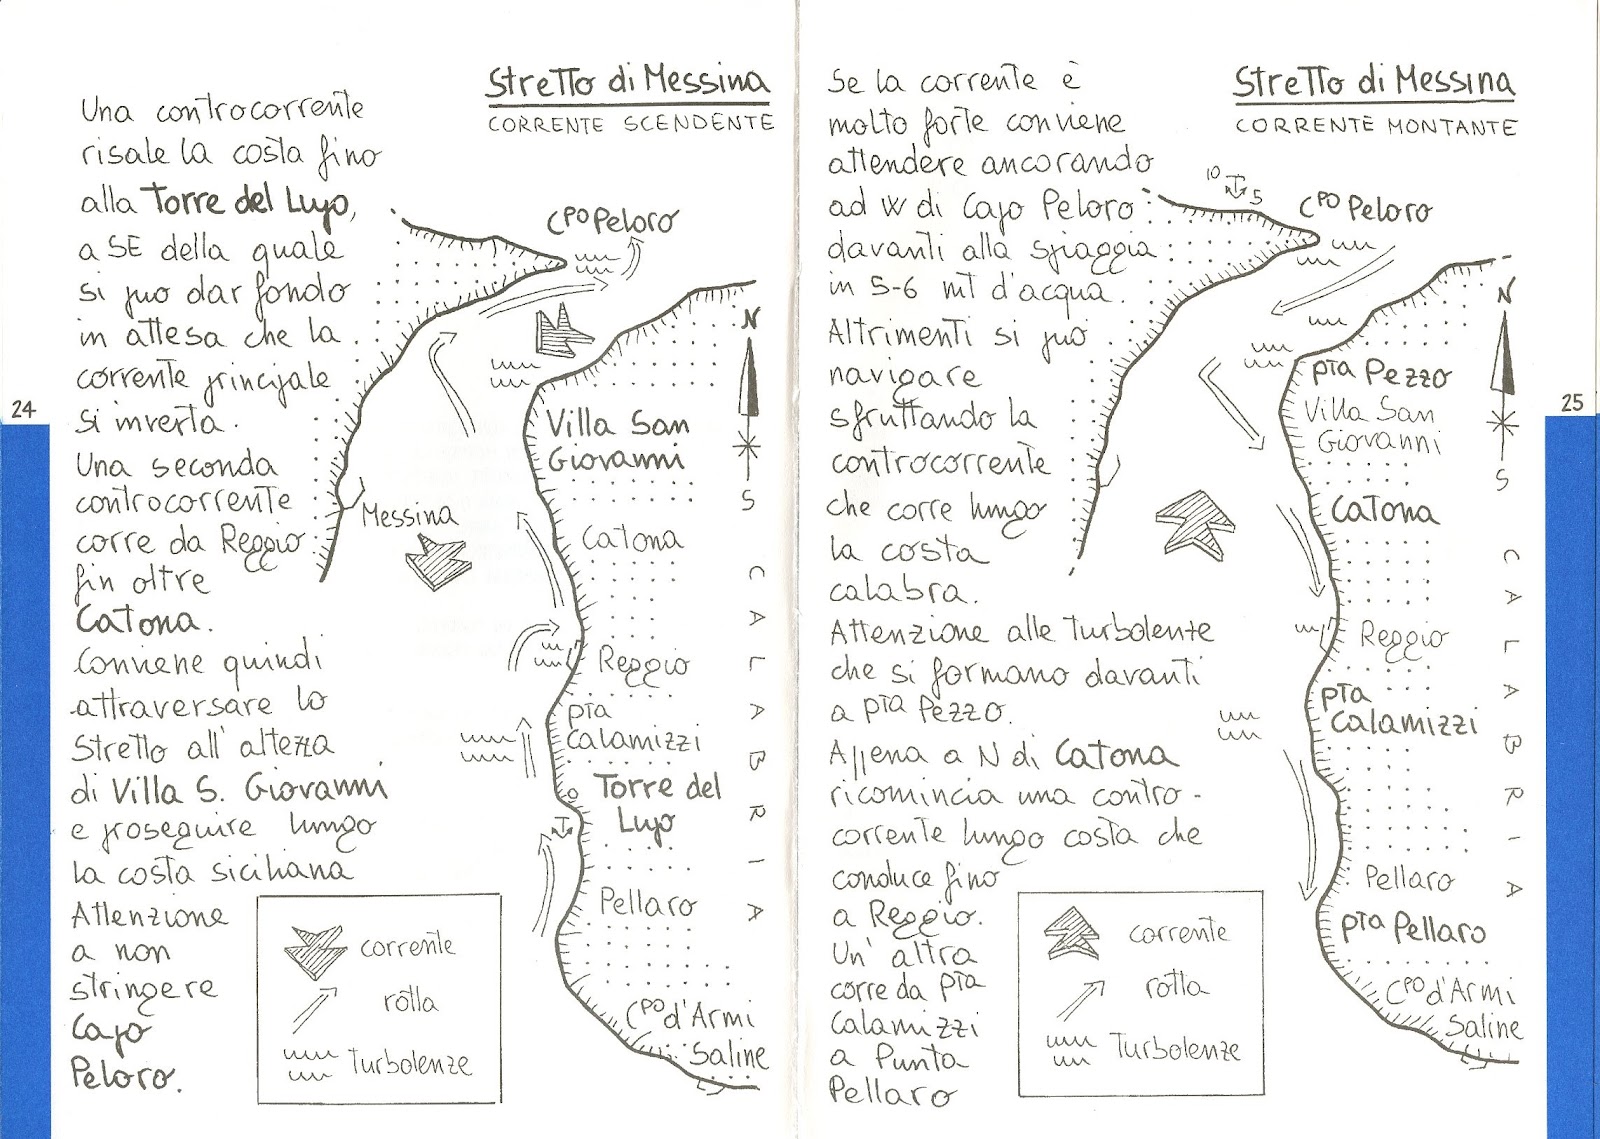 Stretto di Messina
CORRENTE SCENDENTE
Una controcorrente
risale la costa fino
alla Torre del Lupo,
a SE della quale
si puo dar fondo
in attesa che la
corrente principale
si inverta.
Una seconda
controcorrente
corre da Reggio
fin oltre
Catona.
Conviene quindi
attraversare lo
Stretto all'altezza
di Villa S. Giovanni
e proseguire lungo
la costa siciliana
Attenzione
a non
stringere
Capo
Peloro.
24
CPO Peloro
N
S
Villa San
Giovanni
Messina
Catona
Reggio
PTA
Calamizzi
Torre del
Lupo
Pellaro
CPO d'Armi
Saline
CALABRIA
corrente
rotta
Turbolenze
Stretto di Messina
CORRENTE MONTANTE
Se la corrente è
molto forte conviene
attendere ancorando
ad W di Capo Peloro
davanti alla spiaggia
in 5-6 mt d'acqua.
Altrimenti si può
navigare
sfruttando la
controcorrente
che corre lungo
la costa
calabra.
Attenzione alle turbolenze
che si formano davanti
a PTA Pezzo.
Appena a N di Catona
ricomincia una contro-
corrente lungo costa che
conduce fino
a Reggio.
Un'altra
corre da PTA
Calamizzi
a Punta
Pellaro
25
10
5
CPO Peloro
N
S
PTA Pezzo
Villa San
Giovanni
Catona
Reggio
PTA
Calamizzi
Pellaro
PTA Pellaro
CPO d'Armi
Saline
CALABRIA
corrente
rotta
Turbolenze